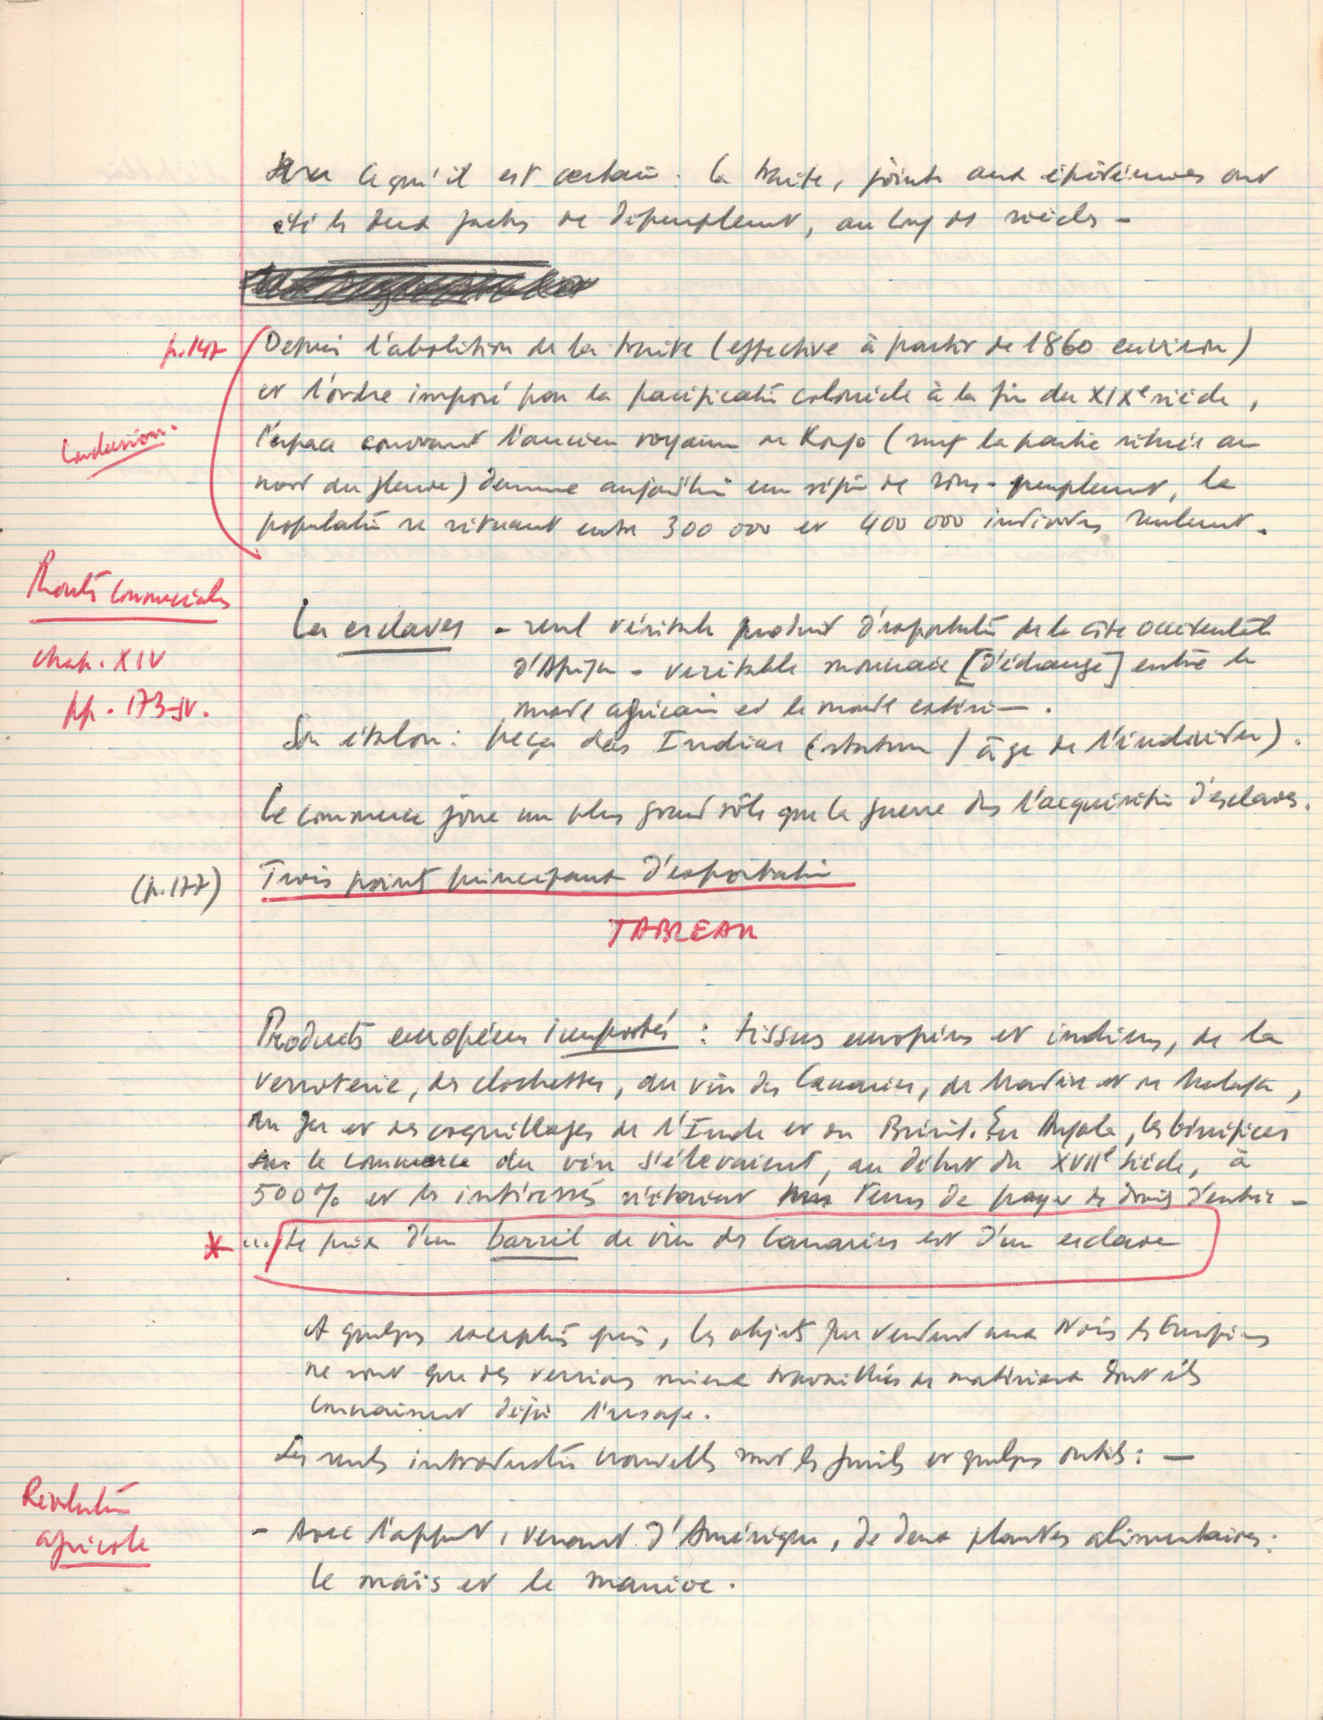 ce qu'il est certain : la traite, jointe aux épidémies ont
été les deux facteurs de dépeuplement, au long des siècles -
p. 147
Depuis l'abolition de la traite (effective à partir de 1860 environ)
et l'ordre imposé par la pacification coloniale à la fin du XIXe siècle,
Conclusion.
l'espace couvrant l'ancien royaume de Kongo (sauf la partie située au
nord du fleuve) demeure aujourd'hui une région de sous-peuplement, la
population se situant entre 300 000 et 400 000 individus seulement.
Produits commerciaux
chap. XIV
pp. 173-sv.
Les esclaves - seul véritable produit d'exportation de la côte occidentale
d'Afrique - véritable monnaie [d'échange] entre le
monde africain et le monde extérieur.
Son étalon : peça das Indias (stature / âge de l'individu).
Le commerce joue un plus grand rôle que la guerre dans l'acquisition d'esclaves.
(p. 177)
Trois points principaux d'exportation
TABLEAU
Produits européens importés : tissus européens et indiens, de la
verroterie, des clochettes, du vin des Canaries, de Madère et de Malaga,
du fer et des coquillages de l'Inde et du Brésil. En Angola, les bénéfices
sur le commerce du vin s'élevaient, au début du XVIIe siècle, à
500% et les intéressés n'étaient tenus de payer de droits d'entrée -
* ... le prix d'un barril de vin des Canaries est d'un esclave
A quelques exceptions près, les objets que vendent aux Noirs les Européens
ne sont que des versions mieux travaillées de matériaux dont ils
connaissent déjà l'usage.
Les seules introductions nouvelles sont les fusils et quelques outils : -
Révolution
agricole
- Avec l'apport, venant d'Amérique, de deux plantes alimentaires :
le maïs et le manioc.